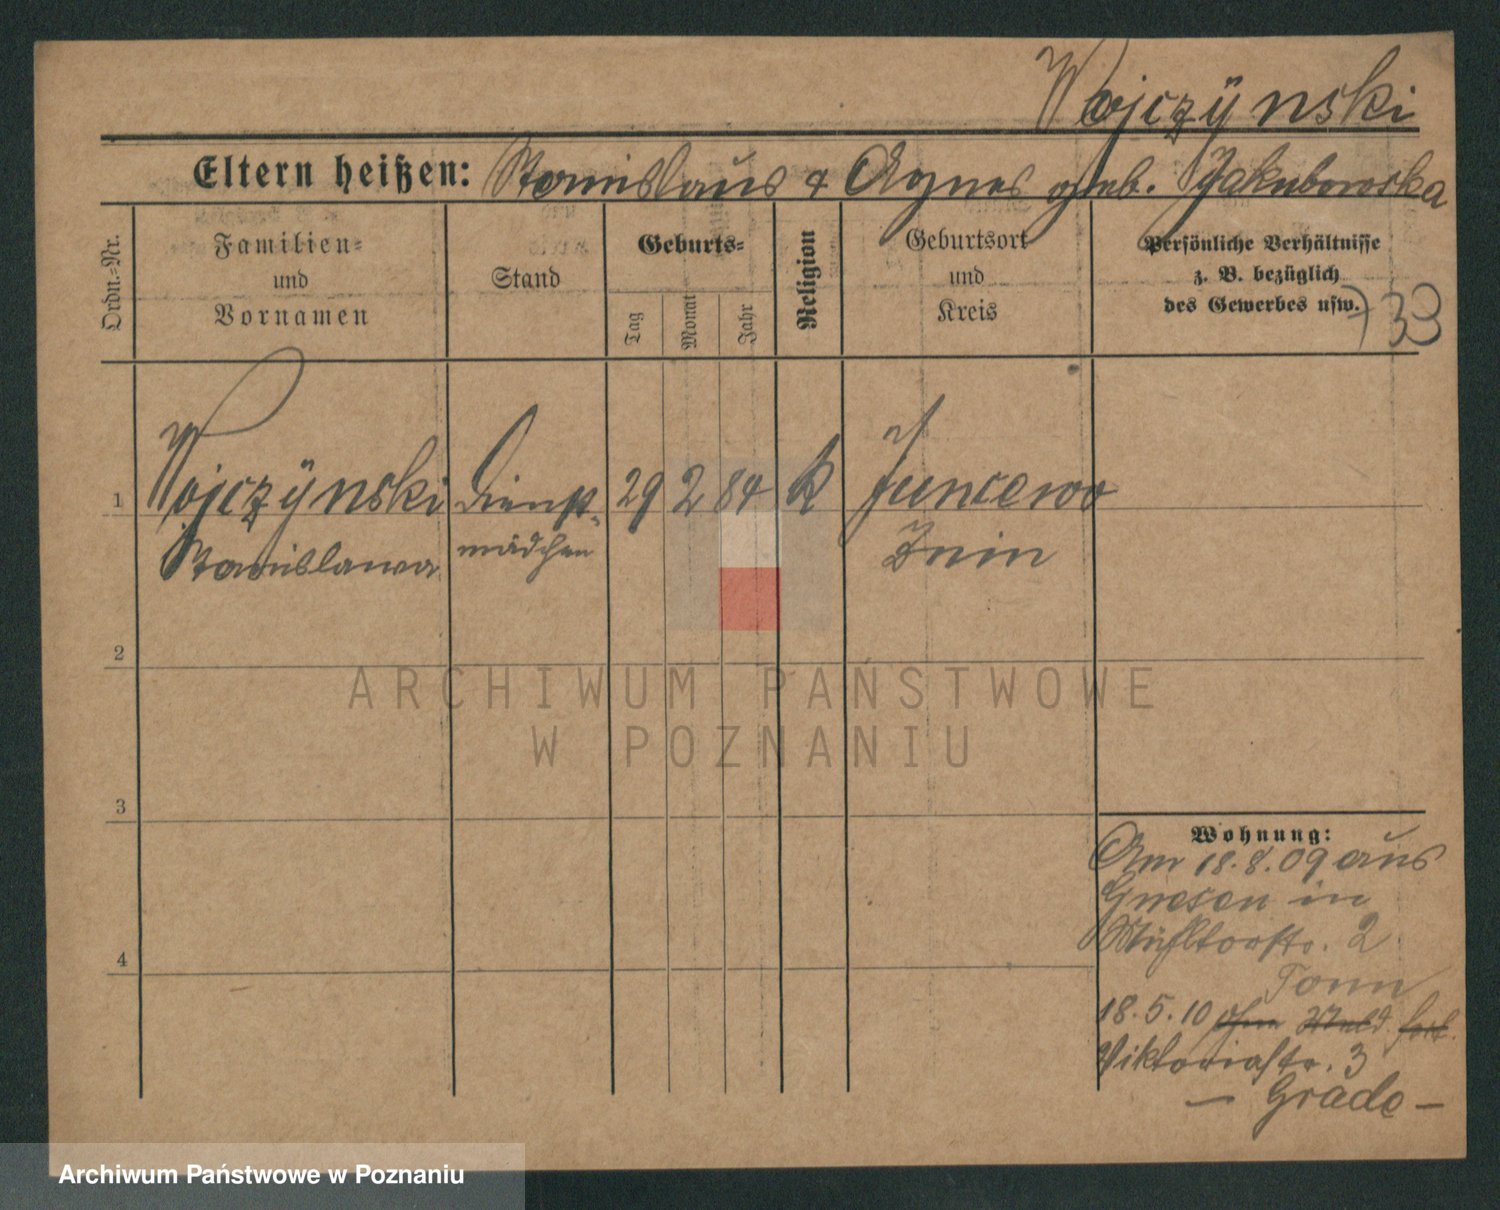 Wojczÿnski
Eltern heißen: Stanislaus & Agnes geb. Jakubowska
Ordn.=Nr.
Familien=
und
Vornamen
Stand
Geburts=
Tag
Monat
Jahr
Religion
Geburtsort
und
Kreis
Persönliche Verhältnisse
z. B. bezüglich
des Gewerbes usw.
733
1 Wojczÿnski Dienst- 29 2 84 k Juncewo
Stanislawa mädchen Znin
2
3
4
Wohnung:
Am 18.8.09 aus
Gnesen in
Mühltorstr. 2
Tonn
18.5.10 ohne fort.
Viktoriastr. 3
— Grade —
ARCHIWUM PAŃSTWOWE
W POZNANIU
Archiwum Państwowe w Poznaniu